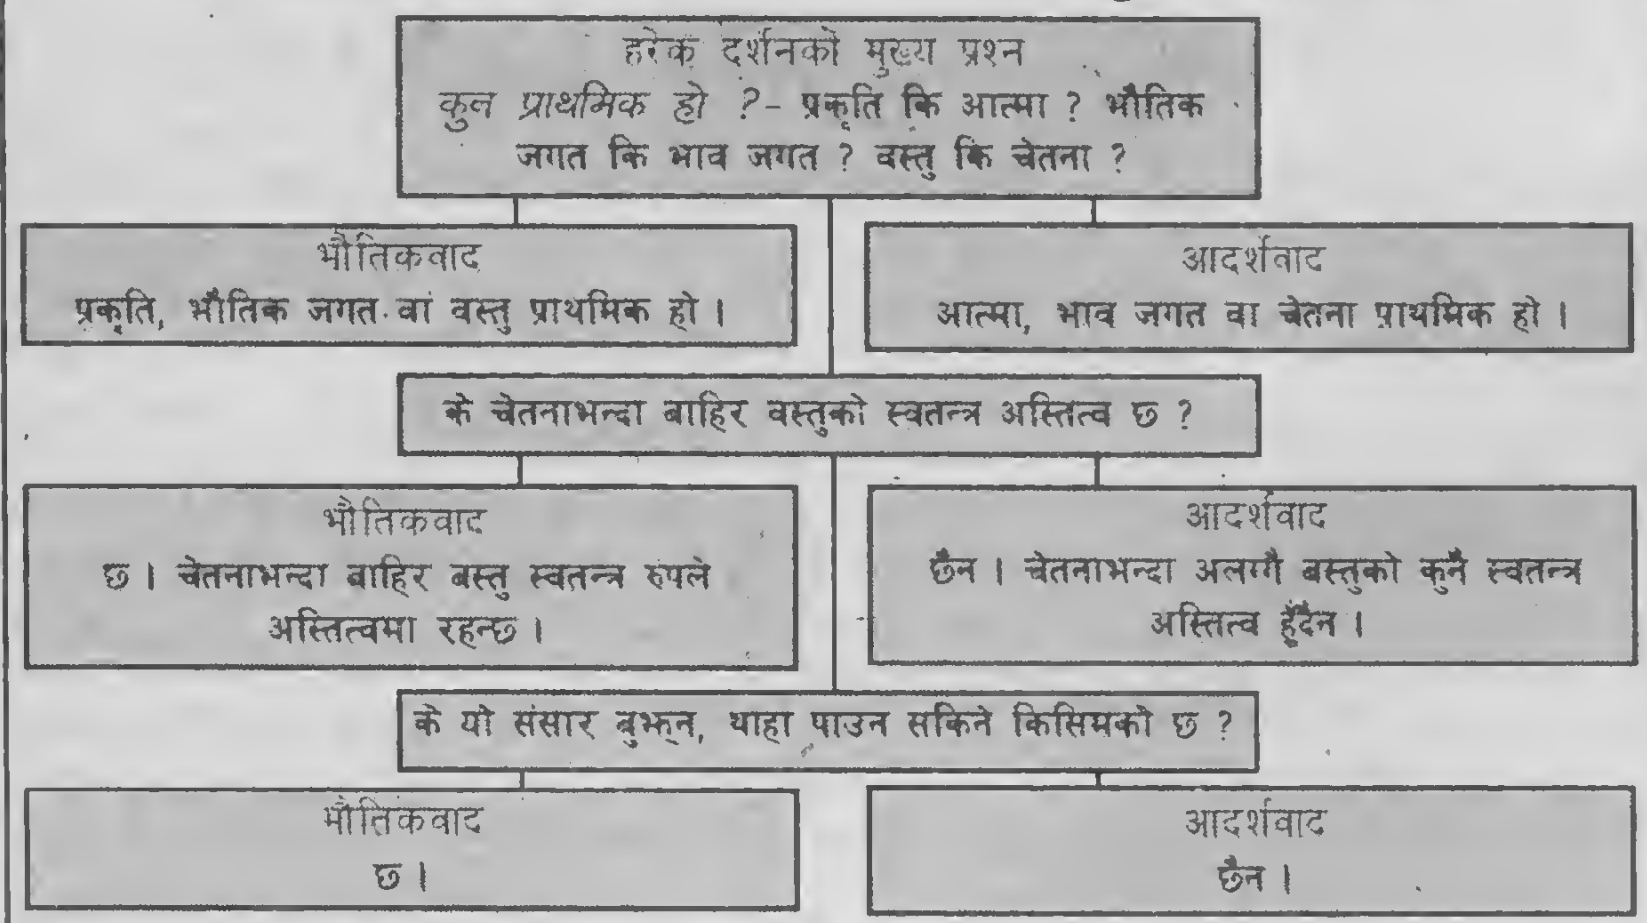 हरेक दर्शनको मुख्य प्रश्न
कुन प्राथमिक हो ?- प्रकृति कि आत्मा ? भौतिक
जगत कि भाव जगत ? वस्तु कि चेतना ?
भौतिकवाद
प्रकृति, भौतिक जगत वा वस्तु प्राथमिक हो ।
आदर्शवाद
आत्मा, भाव जगत वा चेतना प्राथमिक हो ।
के चेतनाभन्दा बाहिर वस्तुको स्वतन्त्र अस्तित्व छ ?
भौतिकवाद
छ । चेतनाभन्दा बाहिर बस्तु स्वतन्त्र रुपले
अस्तित्वमा रहन्छ ।
आदर्शवाद
छैन । चेतनाभन्दा अलग्गै बस्तुको कुनै स्वतन्त्र
अस्तित्व हुँदैन ।
के यो संसार बुझ्न, थाहा पाउन सकिने किसिमको छ ?
भौतिकवाद
छ ।
आदर्शवाद
छैन ।